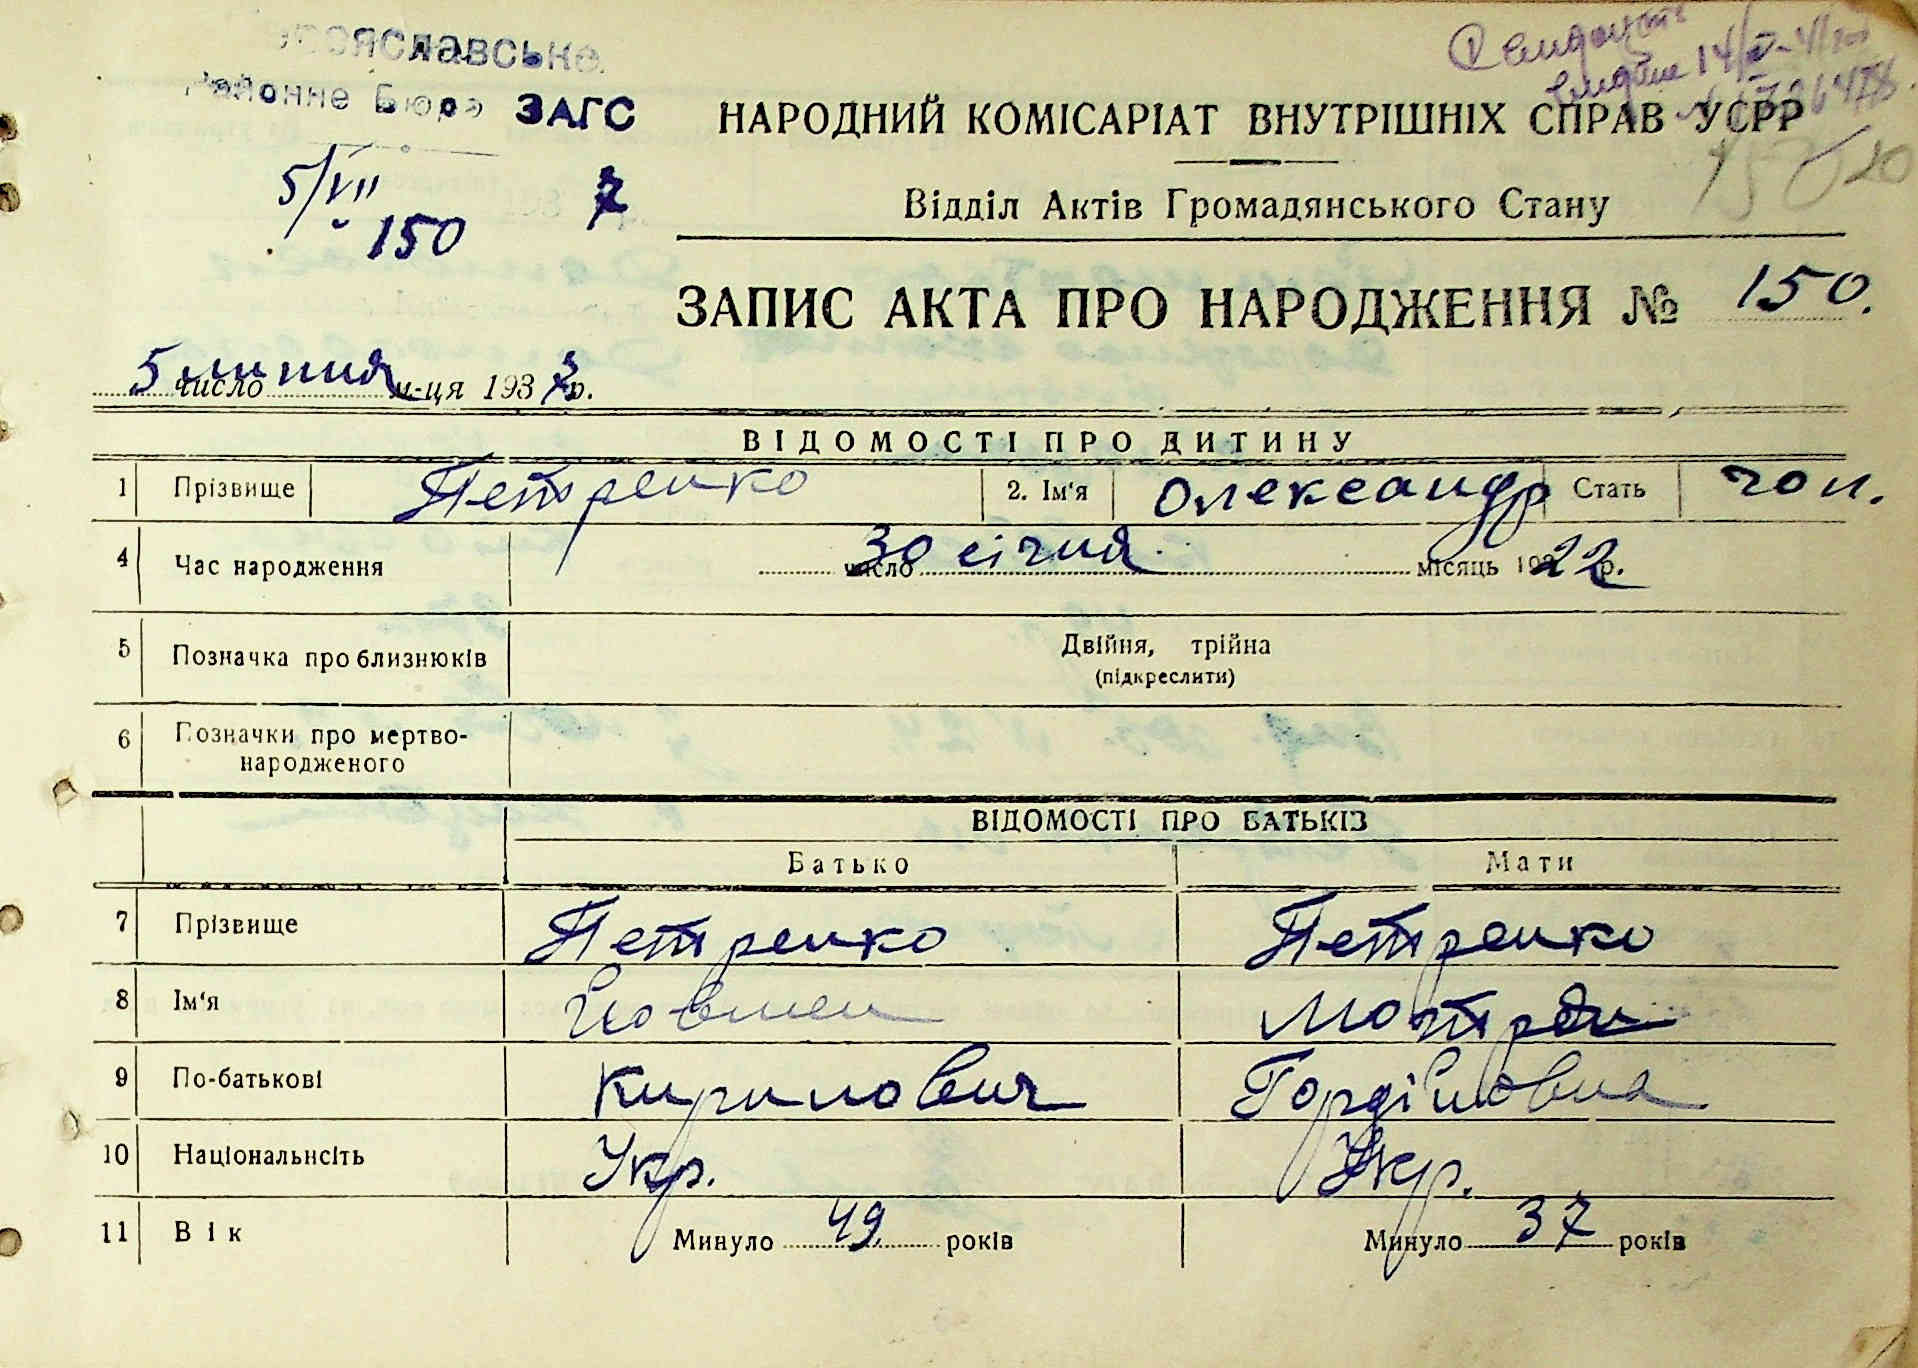 ЗАГС
5/VII 7
150
НАРОДНИЙ КОМІСАРІАТ ВНУТРІШНІХ СПРАВ УСРР
Відділ Актів Громадянського Стану
ЗАПИС АКТА ПРО НАРОДЖЕННЯ № 150.
5 число липня м-ця 1937 р.
ВІДОМОСТІ ПРО ДИТИНУ
1 Прізвище Петренко 2. Ім'я Олександр Стать чол.
4 Час народження 30 число січня місяць 1922 р.
5 Позначка про близнюків Двійня, трійна
(підкреслити)
6 Позначки про мертво-
народженого
ВІДОМОСТІ ПРО БАТЬКІВ
Батько Мати
7 Прізвище Петренко Петренко
8 Ім'я Йовмен Мотря
9 По-батькові Кирилович Гордіївна
10 Національнсіть Укр. Укр.
11 Вік Минуло 49 років Минуло 37 років